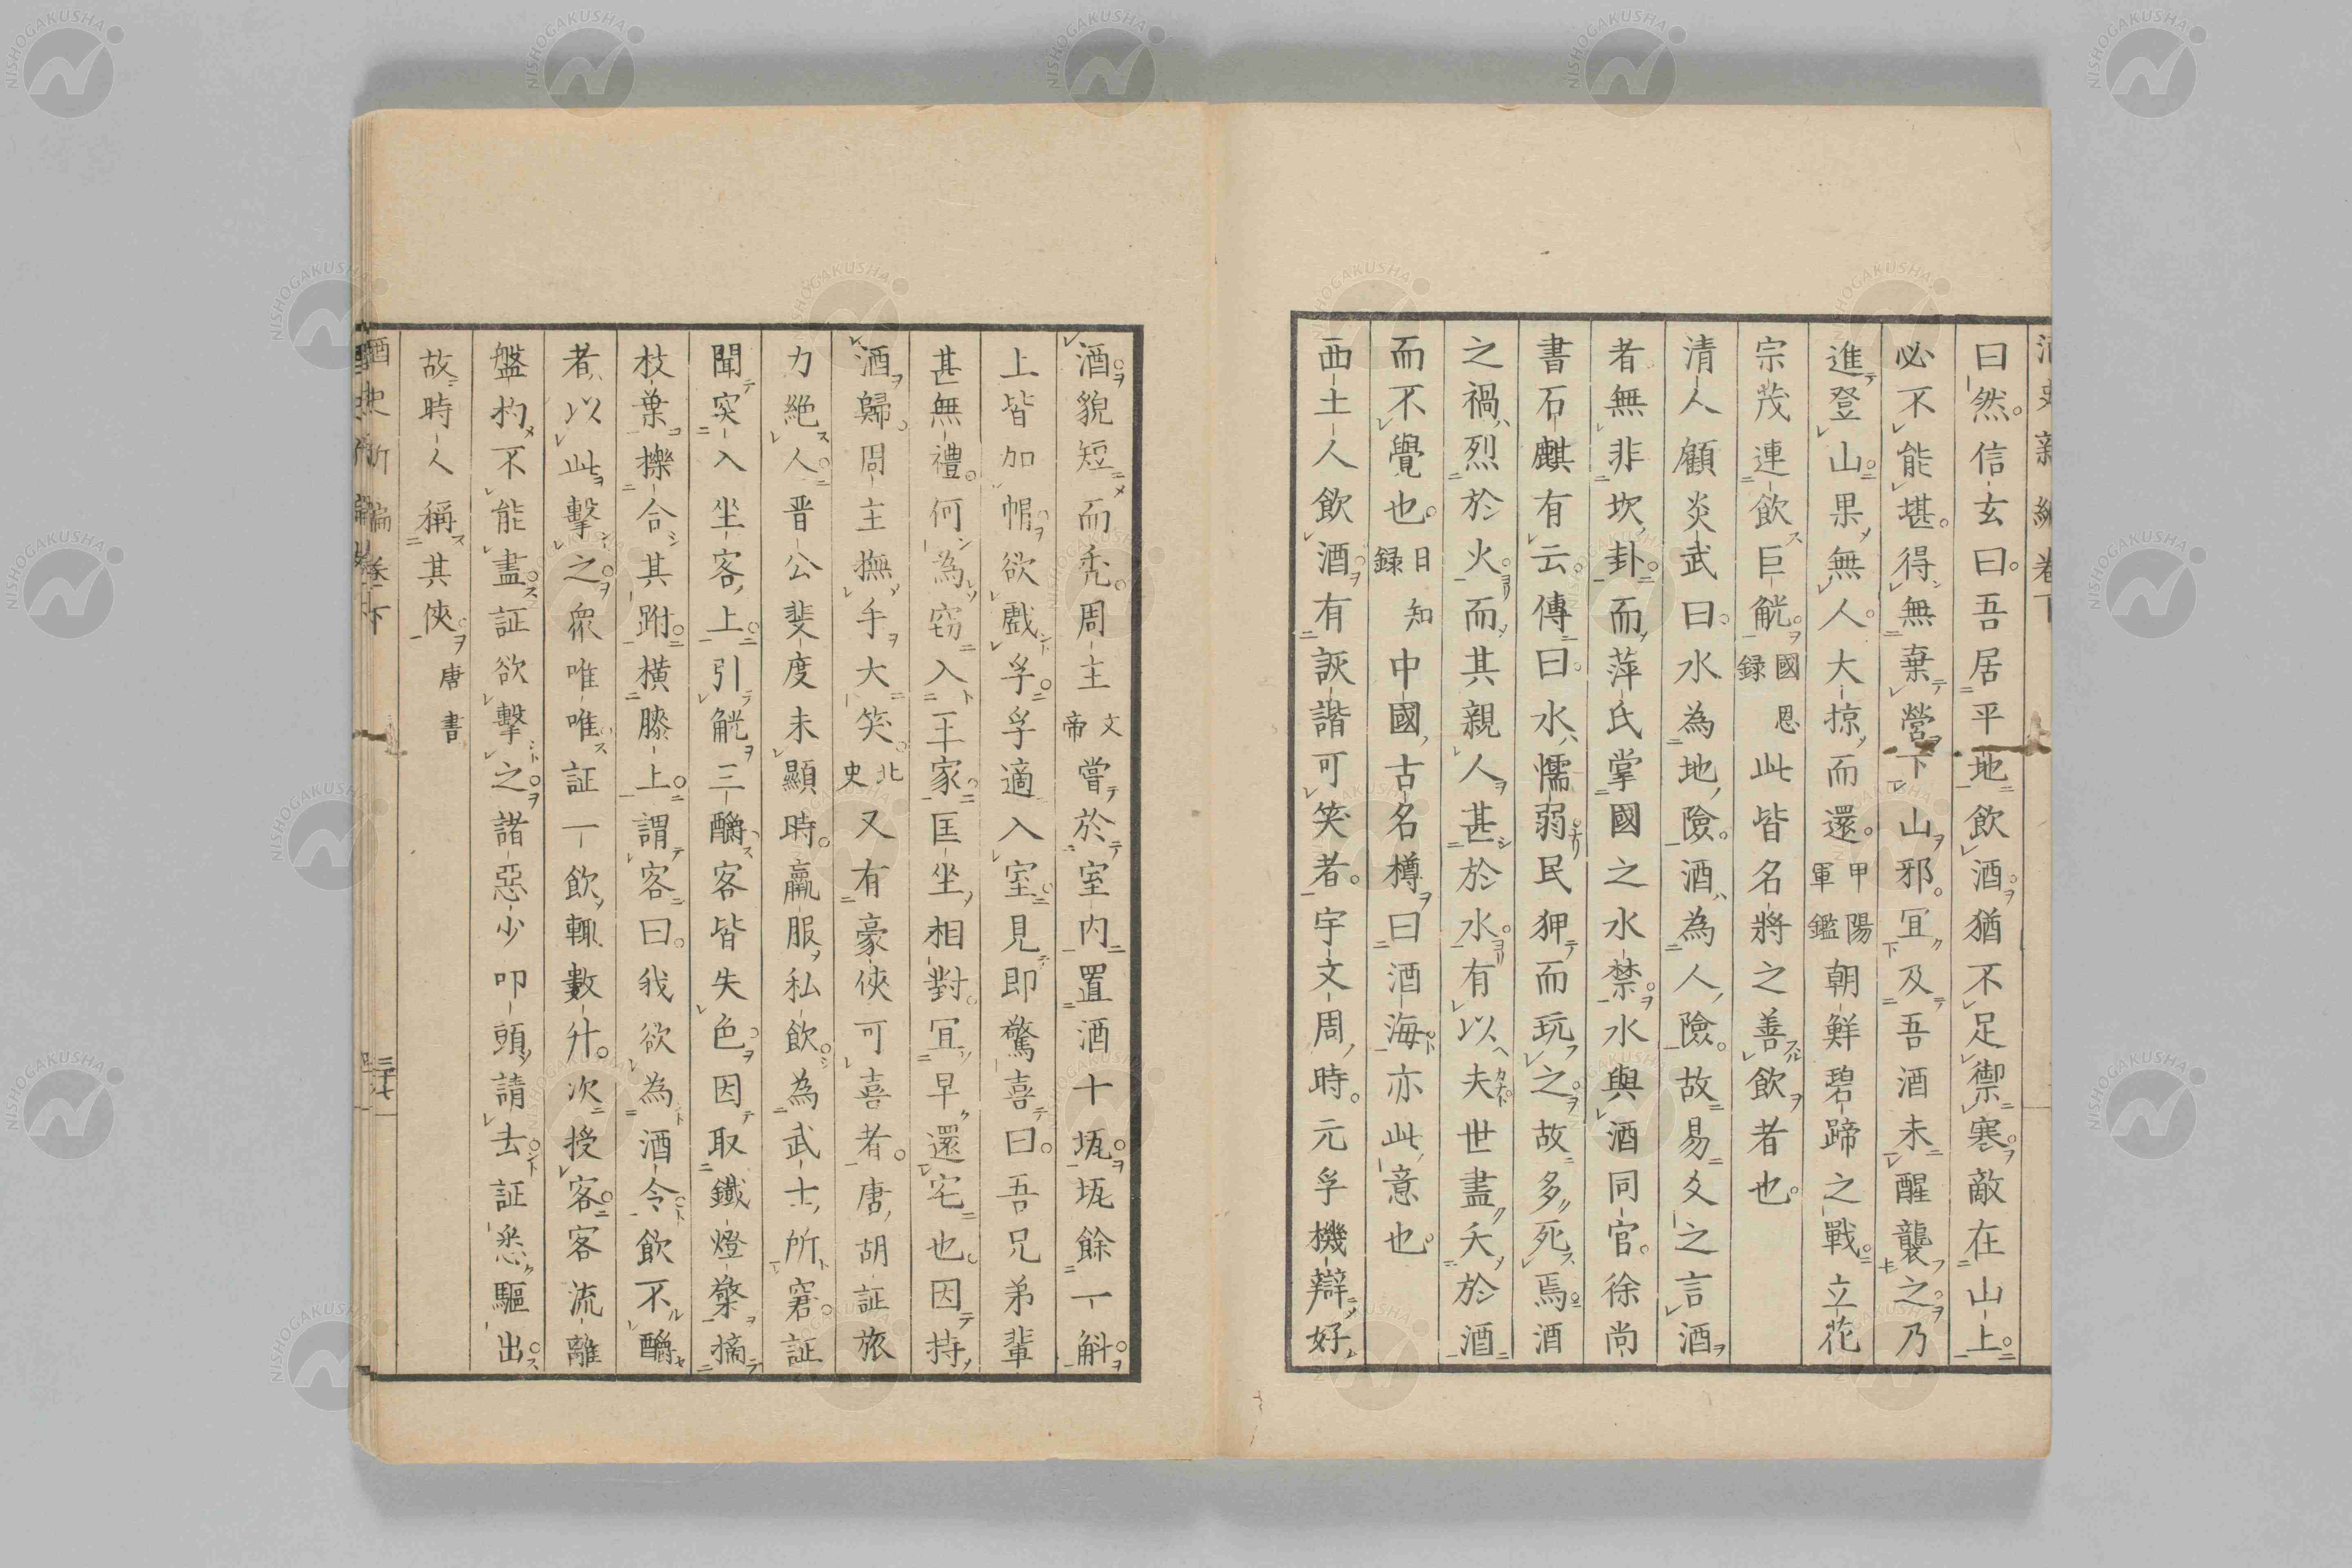 曰然信玄曰吾居平地飲酒猶不足禦寒敵在山上
必不能堪得無棄營下山邪冝及吾酒未醒襲之乃
進登山果無人大掠而還甲陽軍鑑朝鮮碧蹄之戰立花
宗茂連飲巨觥國恩録此皆名將之善飲者也
清人顧炎武曰水為地險酒為人險故易爻之言酒
者無非坎卦而萍氏掌國之水禁水與酒同官徐尚
書石麒有云傳曰水懦弱民狎而玩之故多死焉酒
之禍烈於火而其親人甚於水有以夫世盡夭於酒
而不覺也日知録中國古名樽曰酒海亦此意也
西土人飲酒有詼諧可笑者宇文周時元孚機辯好
酒貌短而禿周主文帝嘗於室内置酒十瓨瓨餘一斛
上皆加帽欲戲孚孚適入室見即驚喜曰吾兄弟輩
甚無禮何為窃入王家匡坐相對冝早還宅也因持
酒歸周主撫手大笑北史又有豪俠可喜者唐胡証旅
力絶人晋公斐度未顯時羸服私飲為武士所窘証
聞突入坐客上引觥三釂客皆失色因取鐵燈檠摘
枝葉擽合其跗横膝上謂客曰我欲為酒令飲不釂
者以此擊之衆唯唯証一飲輒數升次授客客流離
盤杓不能盡証欲擊之諸惡少叩頭請去証悉驅出
故時人稱其俠唐書
酒史新編卷下
NISHOGAKUSHA